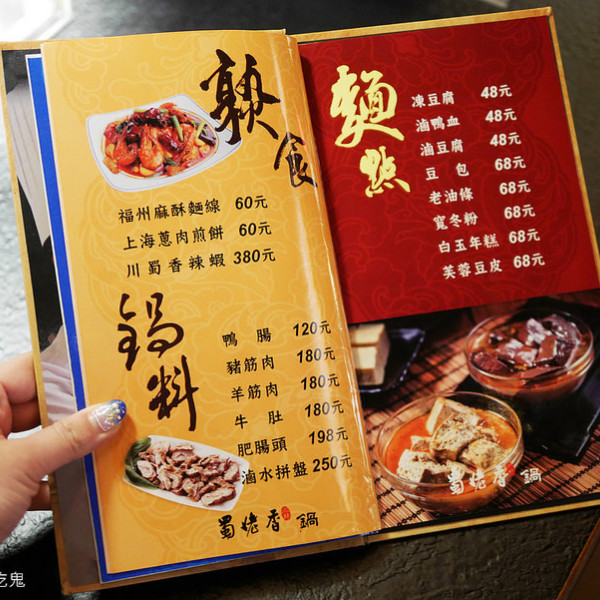 熟食
福州麻酥麵線 60元
上海蔥肉煎餅 60元
川蜀香辣蝦 380元
鍋料
鴨腸 120元
豬筋肉 180元
羊筋肉 180元
牛肚 180元
肥腸頭 198元
滷水拼盤 250元
蜀姥香 鍋
麵點
凍豆腐 48元
滷鴨血 48元
滷豆腐 48元
豆包 68元
老油條 68元
寬冬粉 68元
白玉年糕 68元
芙蓉豆皮 68元
蜀姥香 鍋
吃鬼